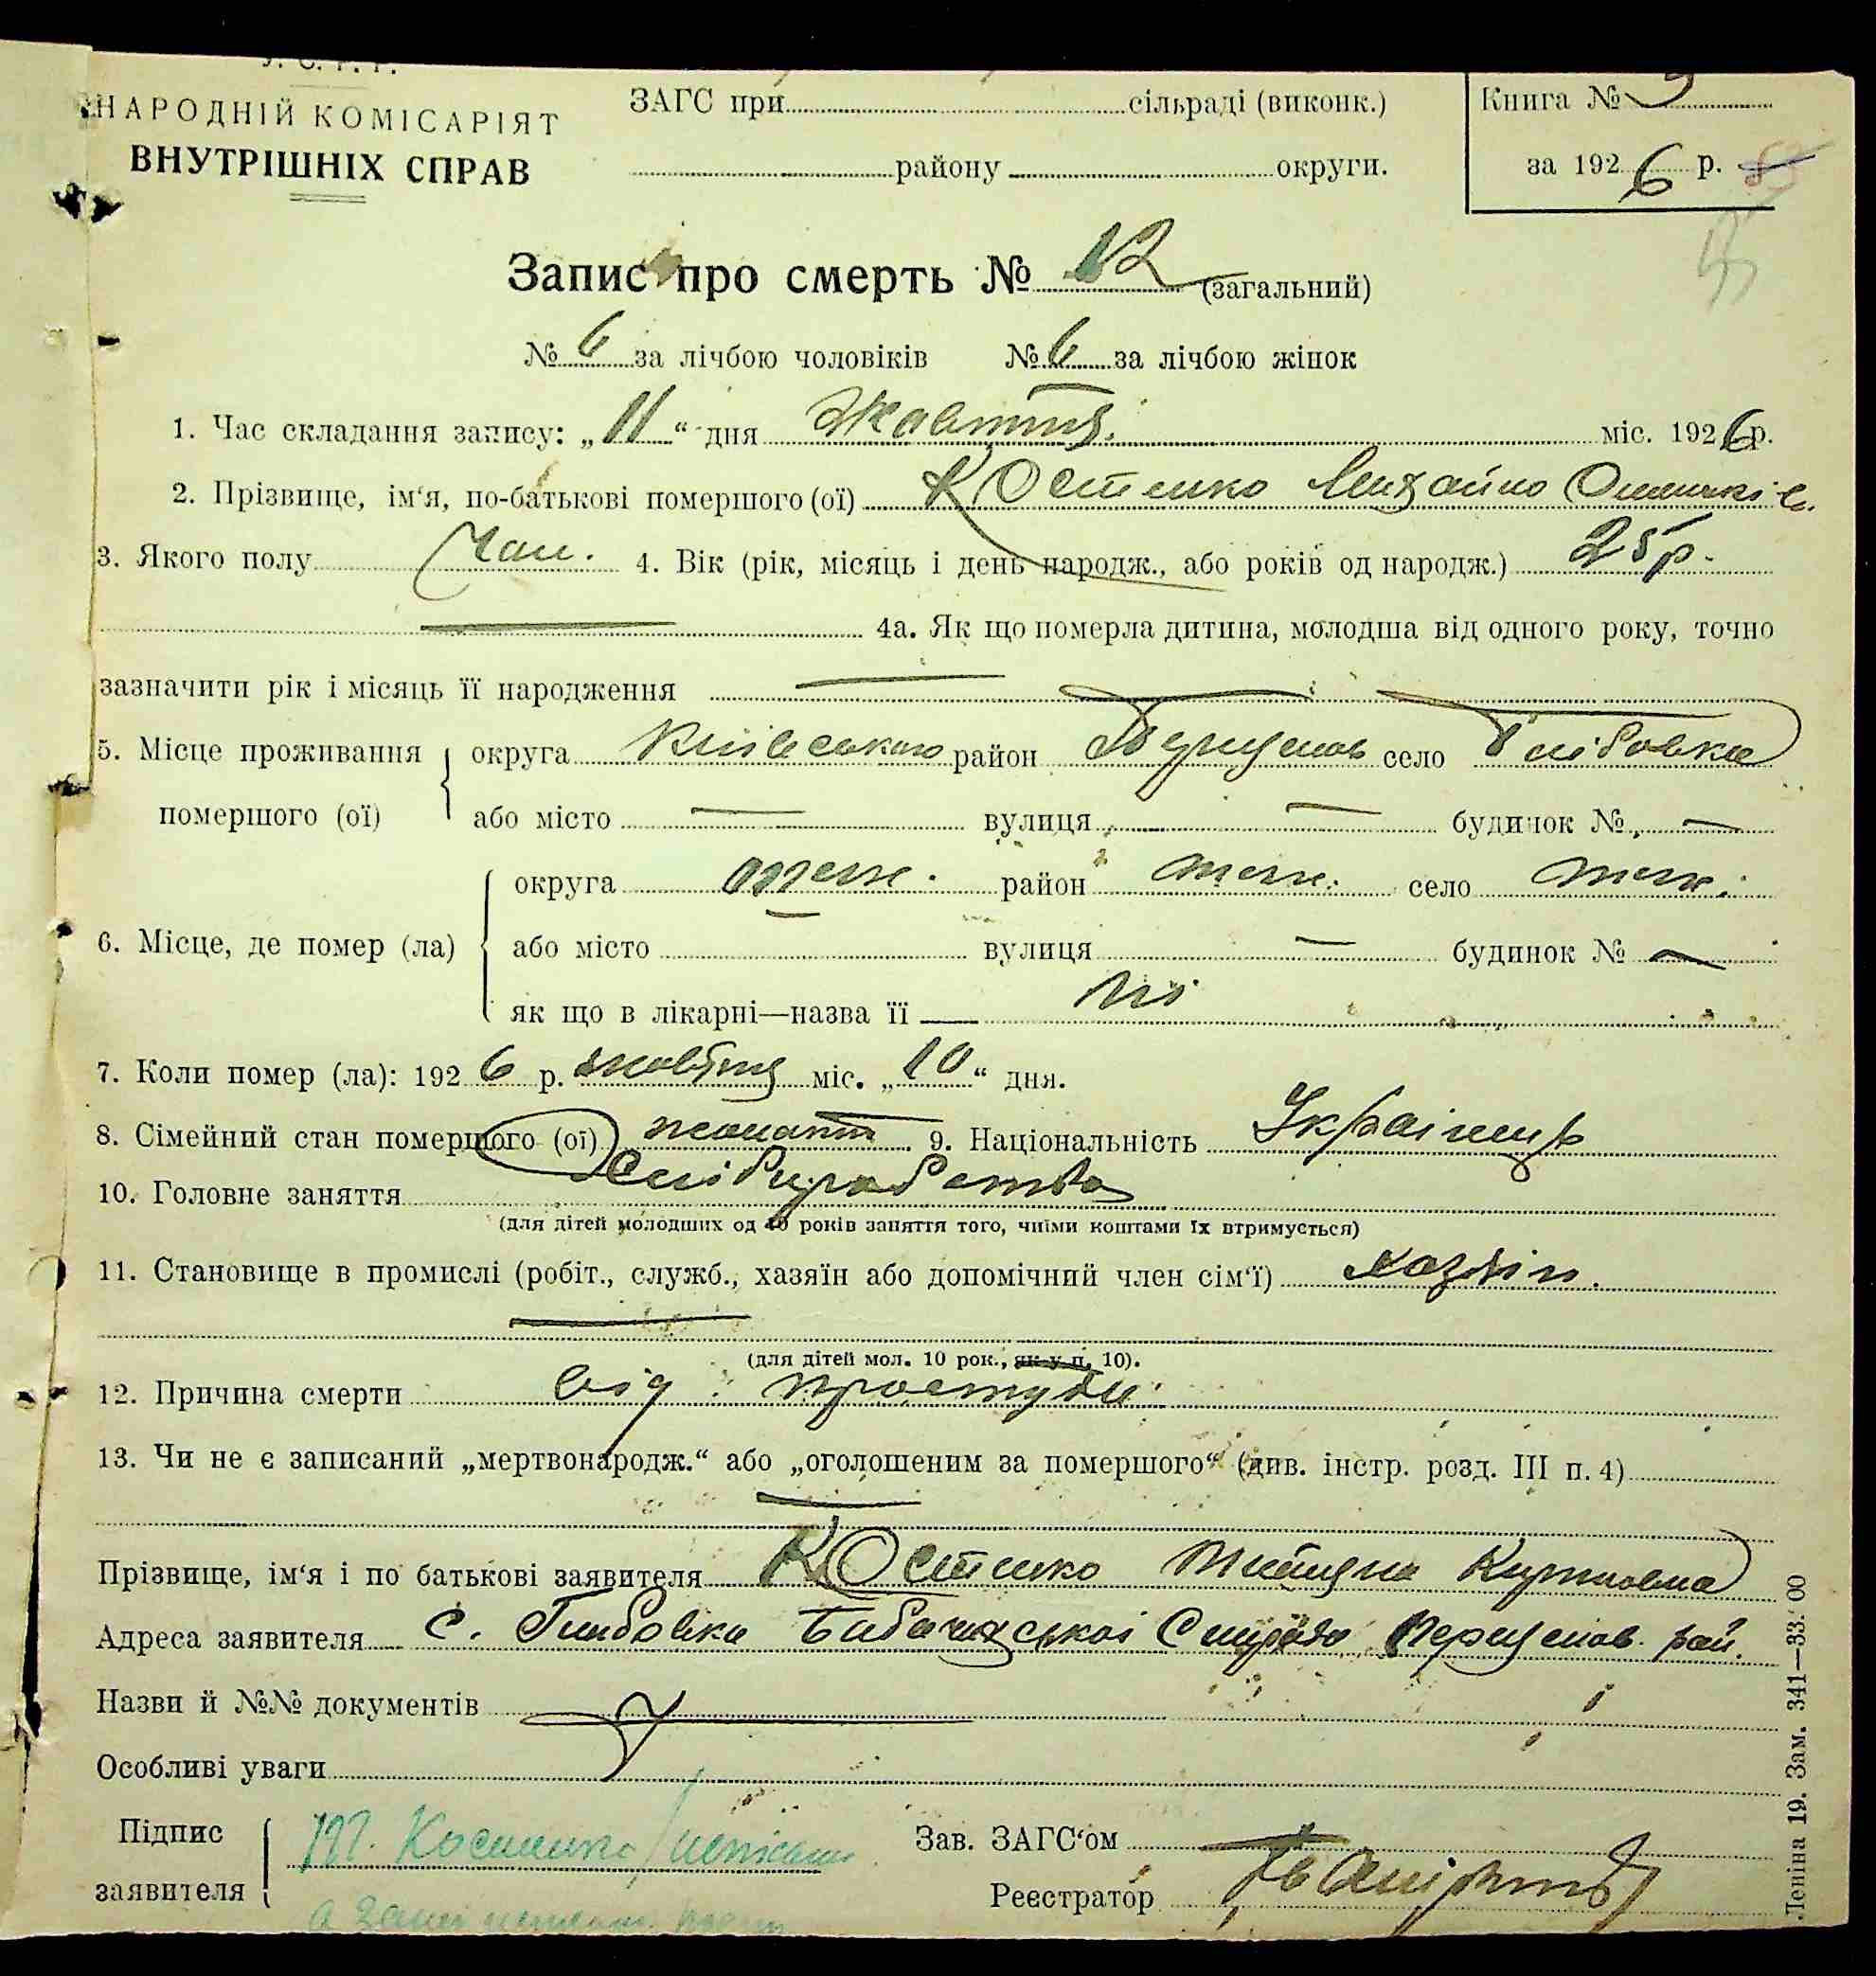 У. С. Р. Р.
НАРОДНІЙ КОМІСАРІЯТ
ВНУТРІШНІХ СПРАВ
ЗАГС при сільраді (виконк.)
району округи.
Книга №
за 1926 р.
Запис про смерть № 12 (загальний)
№ 6 за лічбою чоловіків № 6 за лічбою жінок
1. Час складання запису: „11“ дня Жовтня міс. 1926 р.
2. Прізвище, ім‘я, по-батькові помершого (ої) Костенко Михайло
3. Якого полу Чол. 4. Вік (рік, місяць і день народж., або років од народж.) 25 р.
4а. Як що померла дитина, молодша від одного року, точно
зазначити рік і місяць її народження
5. Місце проживання помершого (ої) округа Київського район село Глібовка
або місто вулиця будинок №
6. Місце, де помер (ла) округа теж. район теж. село теж.
або місто вулиця будинок №
як що в лікарні—назва її ні
7. Коли помер (ла): 1926 р. жовтня міс. „10“ дня.
8. Сімейний стан помершого (ої) жонат 9. Національність Українець
10. Головне заняття
(для дітей молодших од 10 років заняття того, чиїми коштами їх втримується)
11. Становище в промислі (робіт., служб., хазяїн або допомічний член сім‘ї) хазяїн.
(для дітей мол. 10 рок., як у п. 10).
12. Причина смерти від простуди
13. Чи не є записаний „мертвонародж.“ або „оголошеним за помершого“ (див. інстр. розд. III п. 4)
Прізвище, ім‘я і по батькові заявителя Костенко
Адреса заявителя с. Глибовка рай.
Назви й №№ документів
Особливі уваги
Підпис заявителя Костенко
Зав. ЗАГС‘ом
Реєстратор
Леніна 19. Зам. 341—33.000